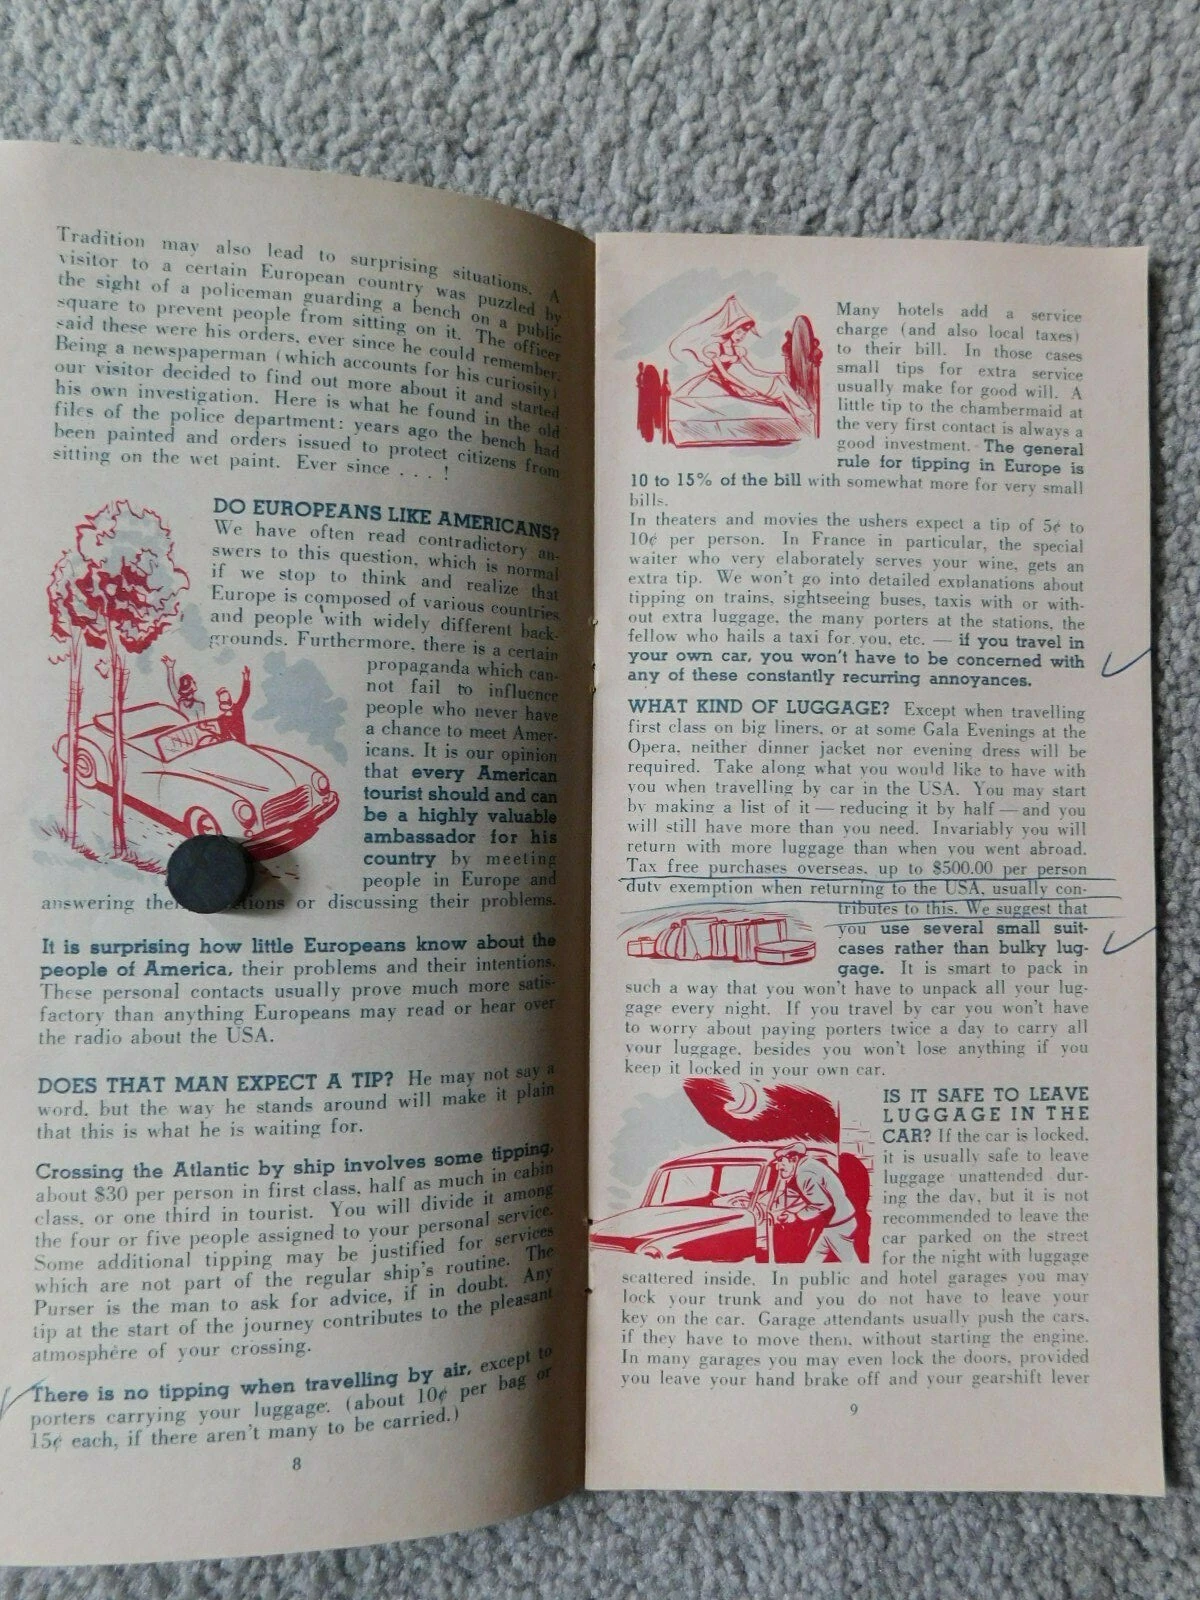 Tradition may also lead to surprising situations. A
visitor to a certain European country was puzzled by
the sight of a policeman guarding a bench on a public
square to prevent people from sitting on it. The officer
said these were his orders, ever since he could remember.
Being a newspaperman (which accounts for his curiosity)
our visitor decided to find out more about it and started
his own investigation. Here is what he found in the old
files of the police department: years ago the bench had
been painted and orders issued to protect citizens from
sitting on the wet paint. Ever since . . . !
DO EUROPEANS LIKE AMERICANS?
We have often read contradictory an-
swers to this question, which is normal
if we stop to think and realize that
Europe is composed of various countries
and people with widely different back-
grounds. Furthermore, there is a certain
propaganda which can-
not fail to influence
people who never have
a chance to meet Amer-
icans. It is our opinion
that every American
tourist should and can
be a highly valuable
ambassador for his
country by meeting
people in Europe and
answering their or discussing their problems.
It is surprising how little Europeans know about the
people of America, their problems and their intentions.
These personal contacts usually prove much more satis-
factory than anything Europeans may read or hear over
the radio about the USA.
DOES THAT MAN EXPECT A TIP? He may not say a
word, but the way he stands around will make it plain
that this is what he is waiting for.
Crossing the Atlantic by ship involves some tipping,
about $30 per person in first class, half as much in cabin
class, or one third in tourist. You will divide it among
the four or five people assigned to your personal service.
Some additional tipping may be justified for services
which are not part of the regular ship's routine. The
Purser is the man to ask for advice, if in doubt. Any
tip at the start of the journey contributes to the pleasant
atmosphere of your crossing.
There is no tipping when travelling by air, except to
porters carrying your luggage. (about 10¢ per bag or
15¢ each, if there aren't many to be carried.)
8
Many hotels add a service
charge (and also local taxes)
to their bill. In those cases
small tips for extra service
usually make for good will. A
little tip to the chambermaid at
the very first contact is always a
good investment. The general
rule for tipping in Europe is
10 to 15% of the bill with somewhat more for very small
bills.
In theaters and movies the ushers expect a tip of 5¢ to
10¢ per person. In France in particular, the special
waiter who very elaborately serves your wine, gets an
extra tip. We won't go into detailed explanations about
tipping on trains, sightseeing buses, taxis with or with-
out extra luggage, the many porters at the stations, the
fellow who hails a taxi for you, etc. — if you travel in
your own car, you won't have to be concerned with
any of these constantly recurring annoyances.
WHAT KIND OF LUGGAGE? Except when travelling
first class on big liners, or at some Gala Evenings at the
Opera, neither dinner jacket nor evening dress will be
required. Take along what you would like to have with
you when travelling by car in the USA. You may start
by making a list of it — reducing it by half — and you
will still have more than you need. Invariably you will
return with more luggage than when you went abroad.
Tax free purchases overseas, up to $500.00 per person
duty exemption when returning to the USA, usually con-
tributes to this. We suggest that
you use several small suit-
cases rather than bulky lug-
gage. It is smart to pack in
such a way that you won't have to unpack all your lug-
gage every night. If you travel by car you won't have
to worry about paying porters twice a day to carry all
your luggage, besides you won't lose anything if you
keep it locked in your own car.
IS IT SAFE TO LEAVE
LUGGAGE IN THE
CAR? If the car is locked,
it is usually safe to leave
luggage unattended dur-
ing the day, but it is not
recommended to leave the
car parked on the street
for the night with luggage
scattered inside. In public and hotel garages you may
lock your trunk and you do not have to leave your
key on the car. Garage attendants usually push the cars,
if they have to move them, without starting the engine.
In many garages you may even lock the doors, provided
you leave your hand brake off and your gearshift lever
9